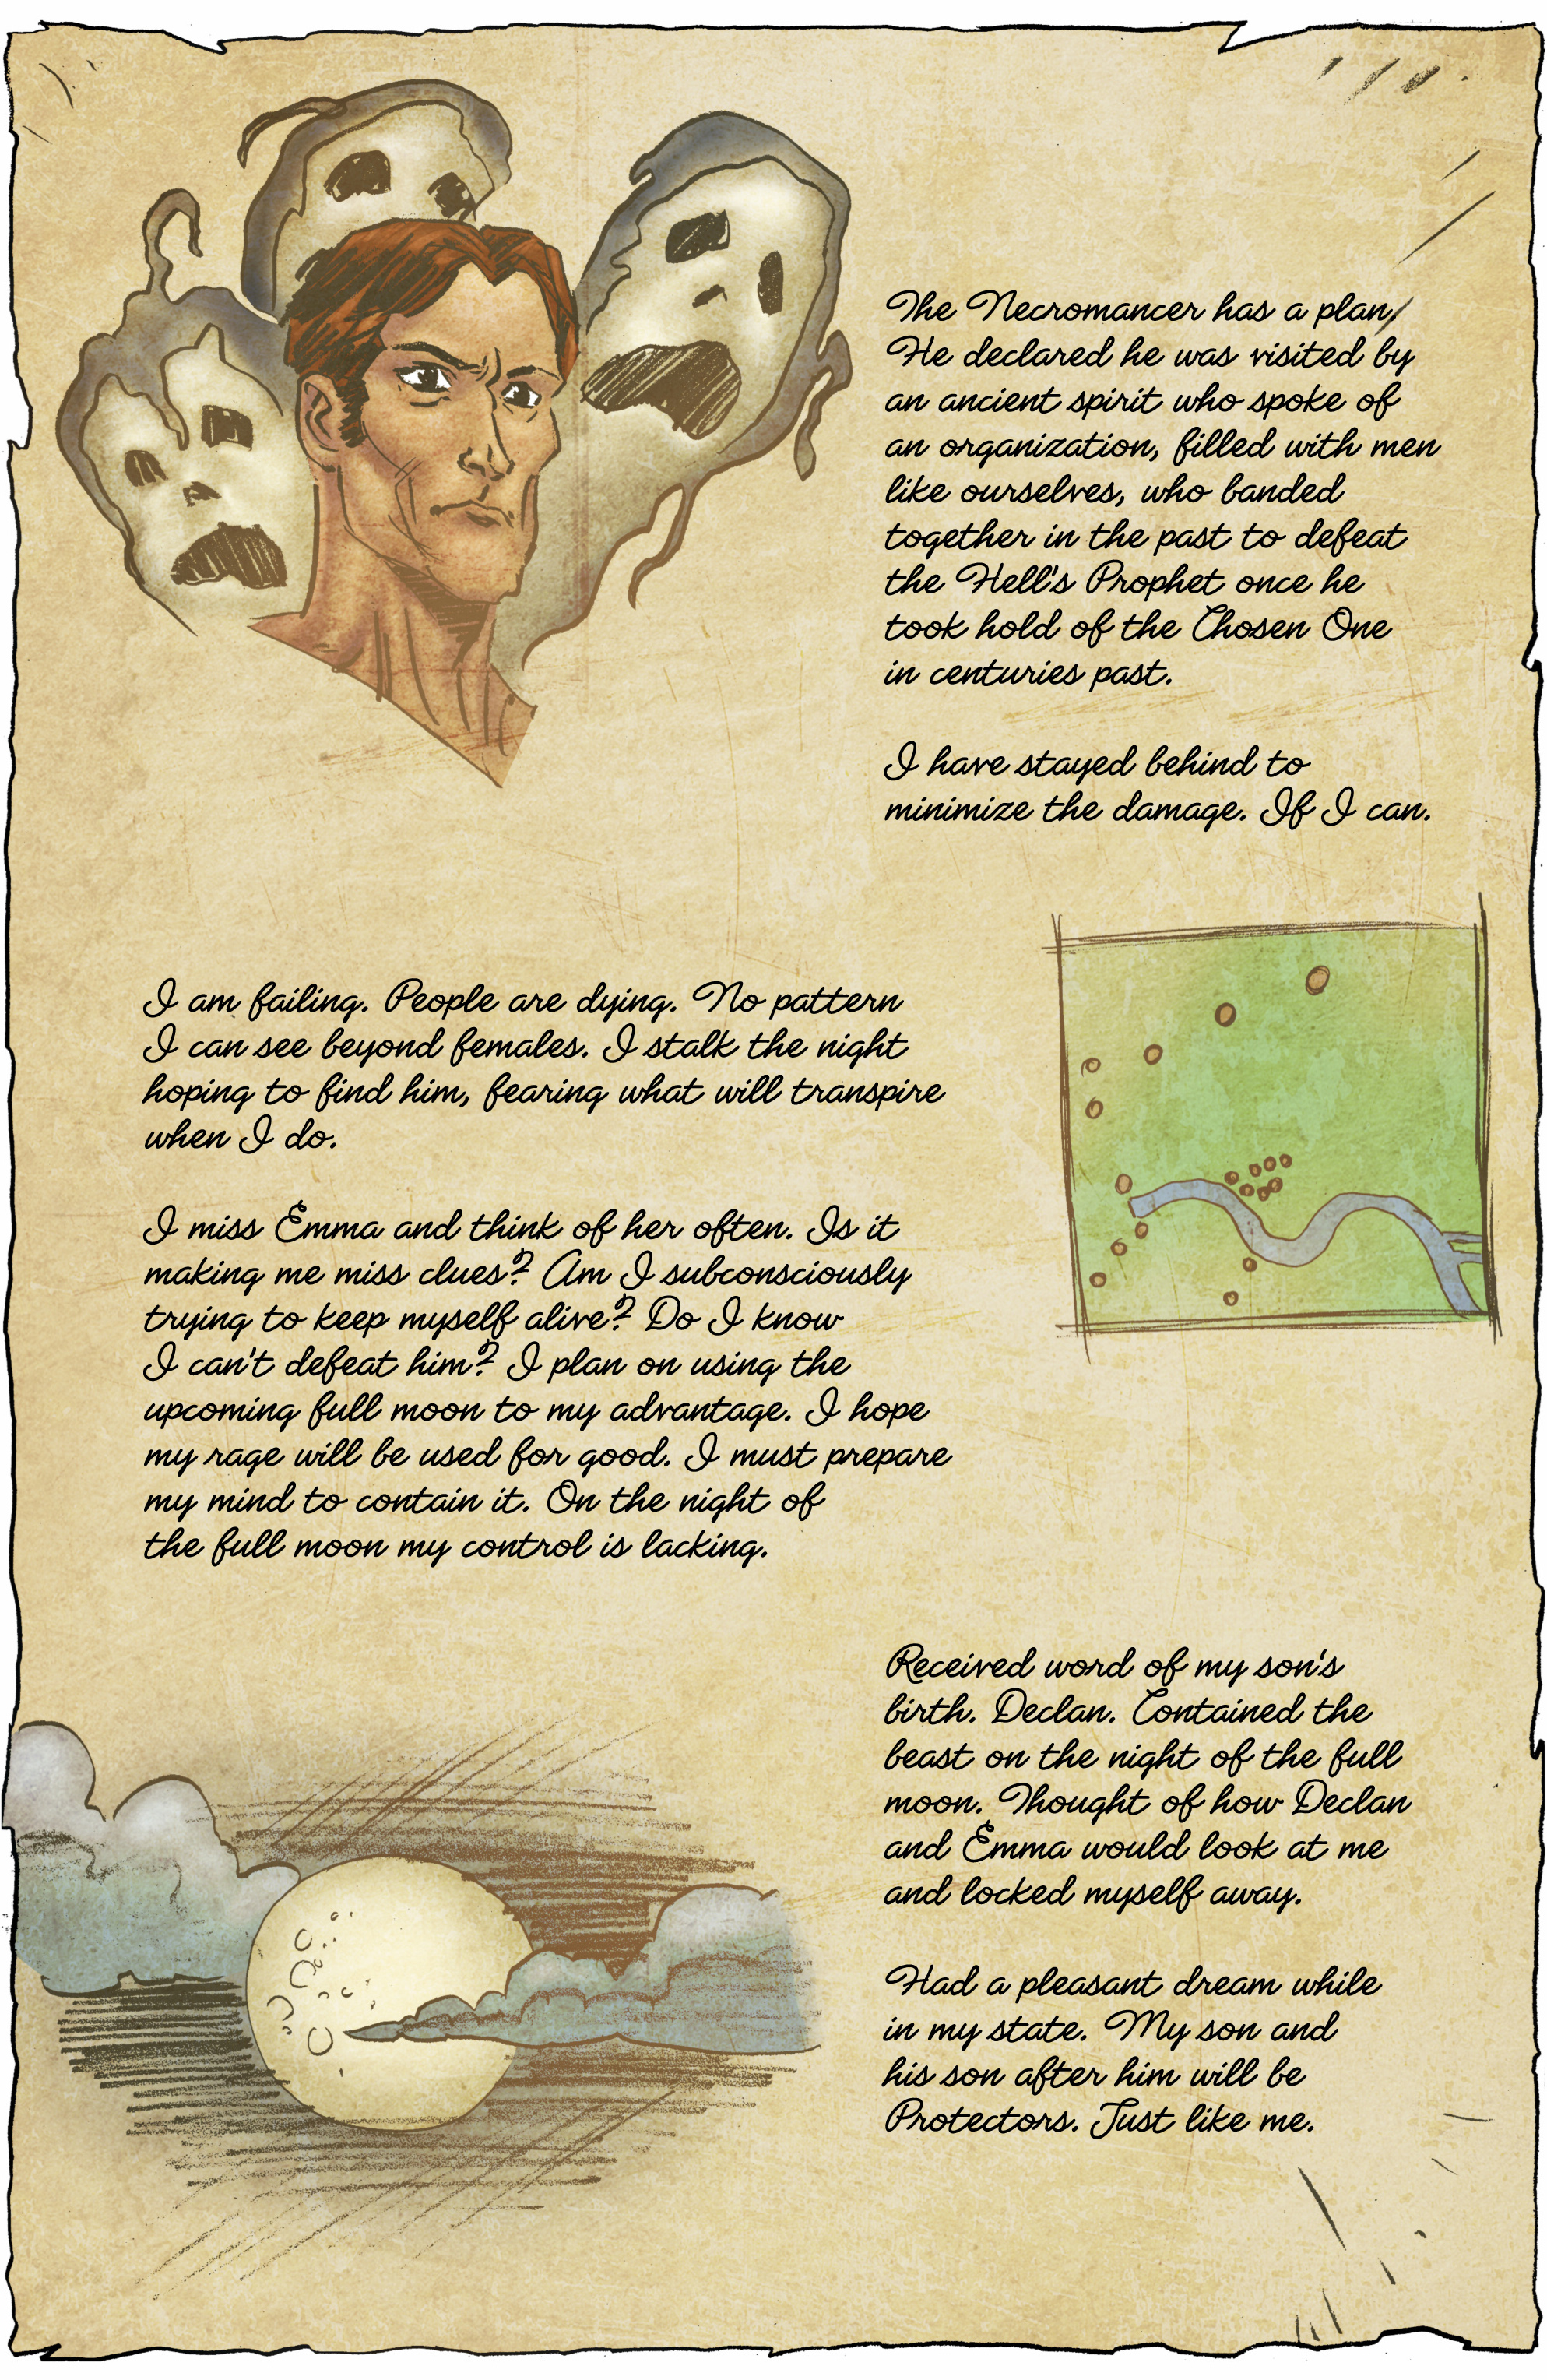 The Necromancer has a plan,
He declared he was visited by
an ancient spirit who spoke of
an organization, filled with men
like ourselves, who banded
together in the past to defeat
the Hell's Prophet once he
took hold of the Chosen One
in centuries past.
I have stayed behind to
minimize the damage. If I can.
I am failing. People are dying. No pattern
I can see beyond females. I stalk the night
hoping to find him, fearing what will transpire
when I do.
I miss Emma and think of her often. Is it
making me miss clues? Am I subconsciously
trying to keep myself alive? Do I know
I can't defeat him? I plan on using the
upcoming full moon to my advantage. I hope
my rage will be used for good. I must prepare
my mind to contain it. On the night of
the full moon my control is lacking.
Received word of my son's
birth. Declan. Contained the
beast on the night of the full
moon. Thought of how Declan
and Emma would look at me
and locked myself away.
Had a pleasant dream while
in my state. My son and
his son after him will be
Protectors. Just like me.